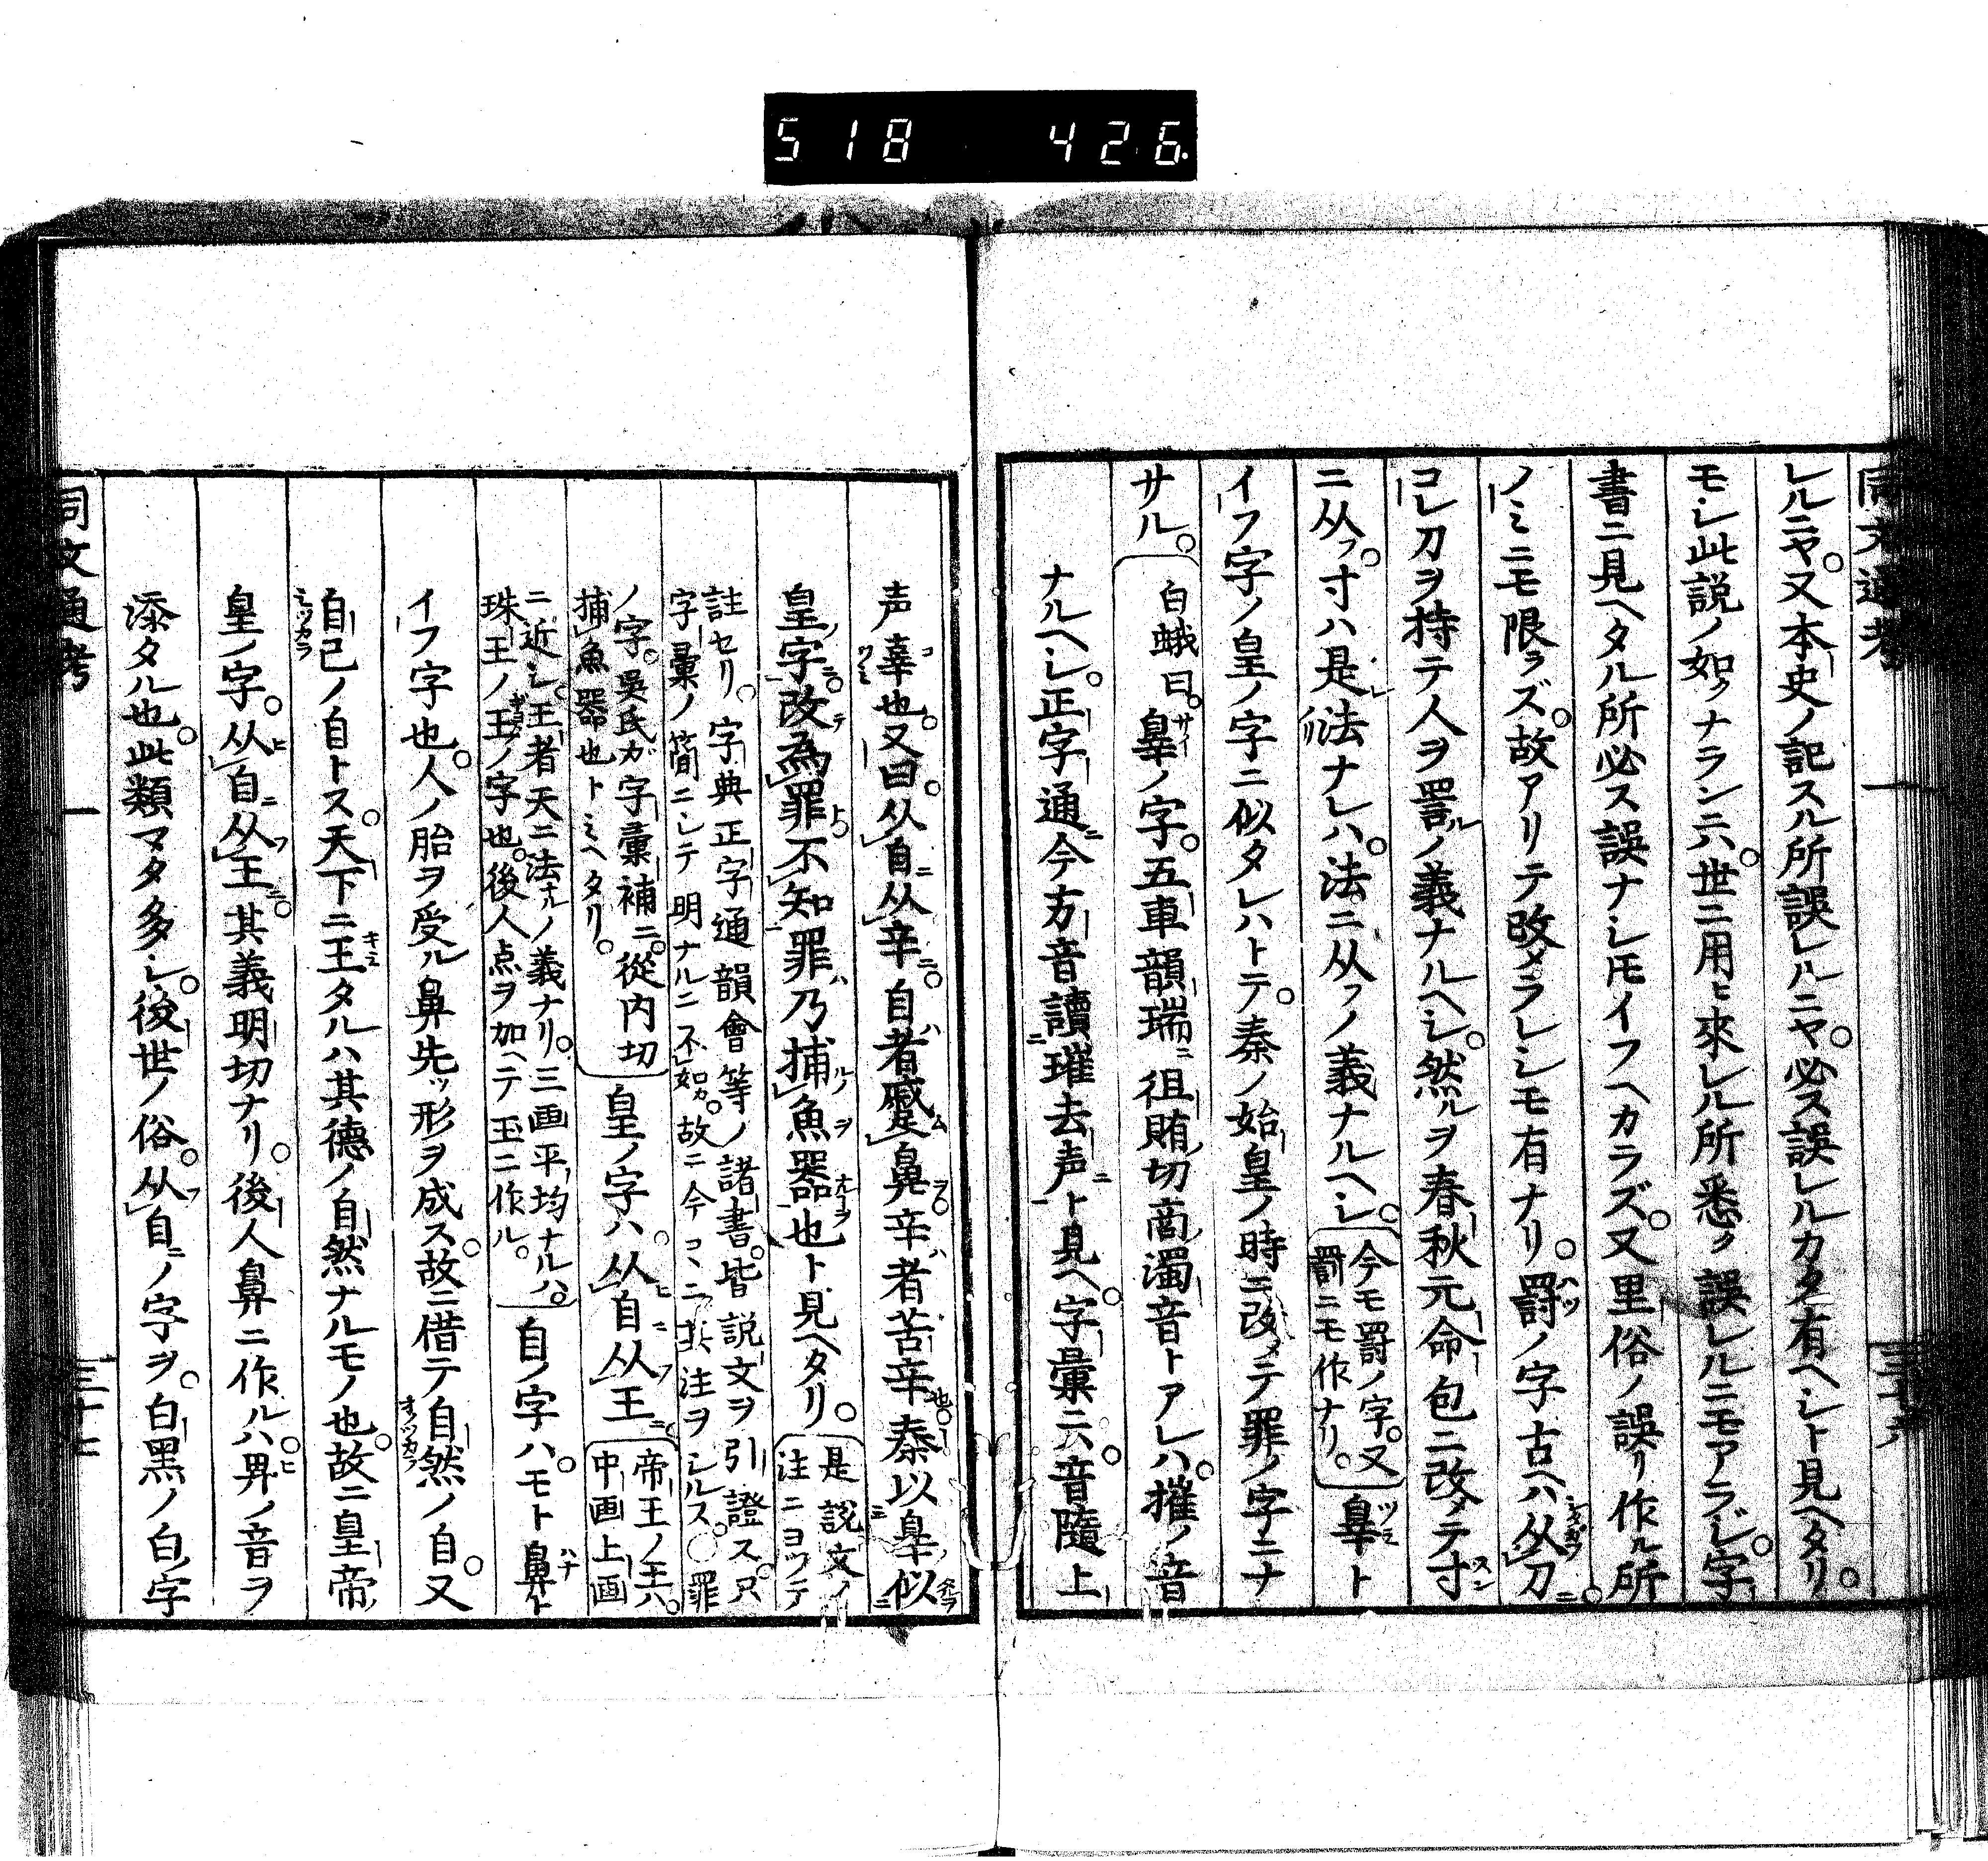 518 426
同文通考 一 三十六
レルニヤ。又本史ノ記スル所誤レルニヤ。必ス誤レルカタ有ヘシト見ヘタリ。
モシ此説ノ如クナラン六。世ニ用ヒ來レル所悉ク誤レルニモアラジ。字
書ニ見ヘタル所必ス誤ナシトモイフヘカラズ。又里俗ノ誤リ作ル所
ノミニモ限ラズ。故アリテ改メラレシモ有ナリ。罰ノ字古ヘハ从刀ニ。
コレ刀ヲ持テ人ヲ詈ルノ義ナルヘシ。然ルヲ春秋元命包ニ改メテ寸
ニ从フ。寸ハ是法ナレハ。法ニ从フノ義ナルヘシ。
今モ罸ノ字。又
罰ニモ作ナリ。
辠ト
イフ字ノ皇ノ字ニ似タレハトテ。秦ノ始皇ノ時ニ改メテ罪ノ字ニナ
サル。
白蛾曰。辠ノ字。五車韻瑞ニ徂賄切商濁音トアレハ。摧ノ音
ナルヘシ。正字通ニ今方音讀璀去声ト見ヘ。字彙ニ六。音隨上
声辜也。又曰。从自从辛。自者蹙鼻辛者苦辛也。秦以辠似
皇字。改為罪。不知罪乃捕魚器也ト見ヘタリ。
是説文ノ
注ニヨツテ
註セリ。字典正字通韻會等ノ諸書。皆説文ヲ引證ス。只
字彙ノ簡ニシテ明ナルニ不如カ。故ニ今コヽニ其注ヲシルス。○罪
ノ字。吳氏ガ字彙補ニ。從内切
捕魚器也トミヘタリ。
皇ノ字ハ。从自从王
帝王ノ王六。
中画上画
ニ近シ。王者天ニ法ルノ義ナリ。三画平均ナルハ。
珠王ノ王ノ字也。後人点ヲ加ヘテ玉ニ作ル。
自ノ字ハ。モト鼻ト
イフ字也。人ノ胎ヲ受ル鼻先ッ形ヲ成ス。故ニ借テ自然ノ自。又
自己ノ自トス。天下ニ王タルハ其德ノ自然ナルモノ也。故ニ皇帝
皇ノ字。从自从王。其義明切ナリ。後人鼻ニ作ルハ。畀ノ音ヲ
添タル也。此類マタ多シ。後世ノ俗。从自ノ字ヲ。白黑ノ白ノ字
同文通考 一 三十七